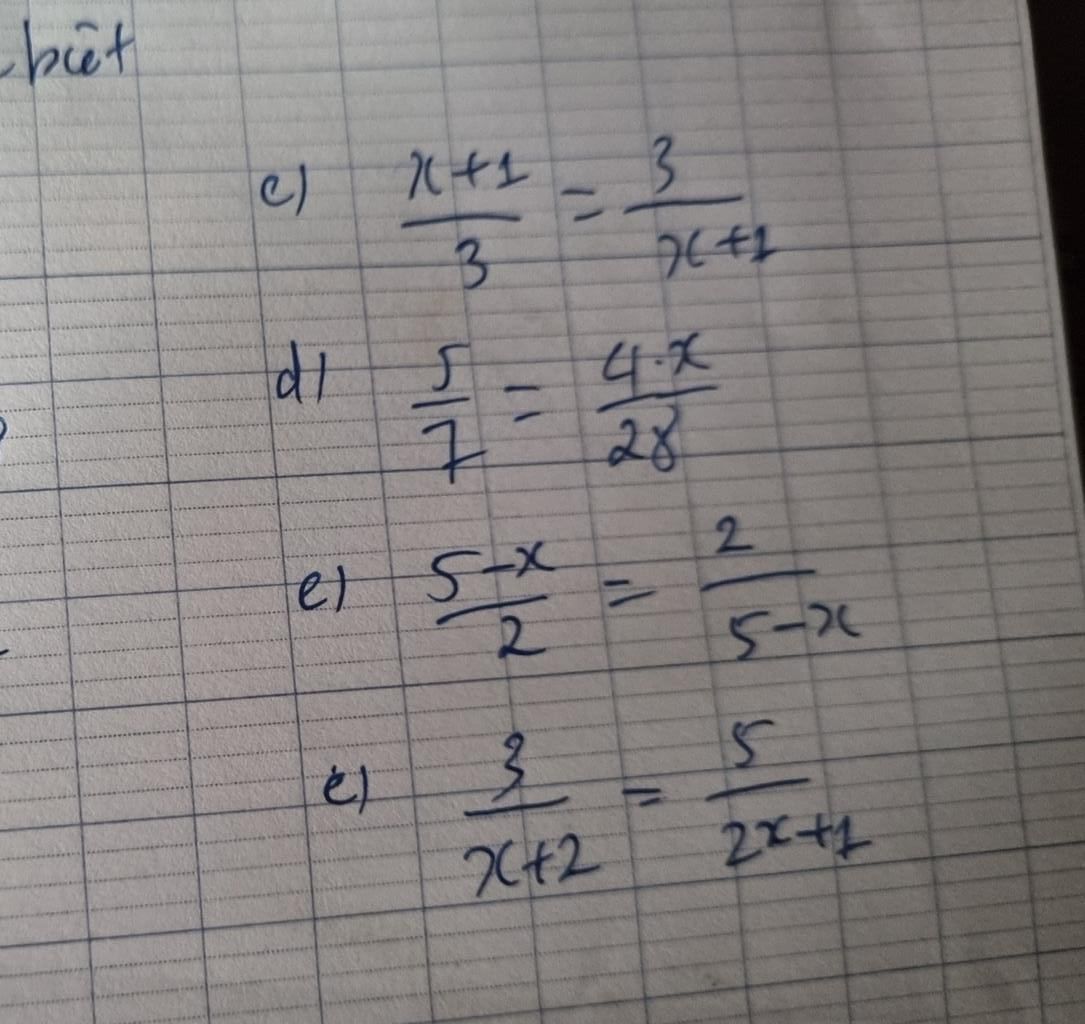 biết
c) \frac{x+1}{3} = \frac{3}{x+1}
d) \frac{5}{7} = \frac{4.x}{28}
e) \frac{5-x}{2} = \frac{2}{5-x}
ê) \frac{3}{x+2} = \frac{5}{2x+1}